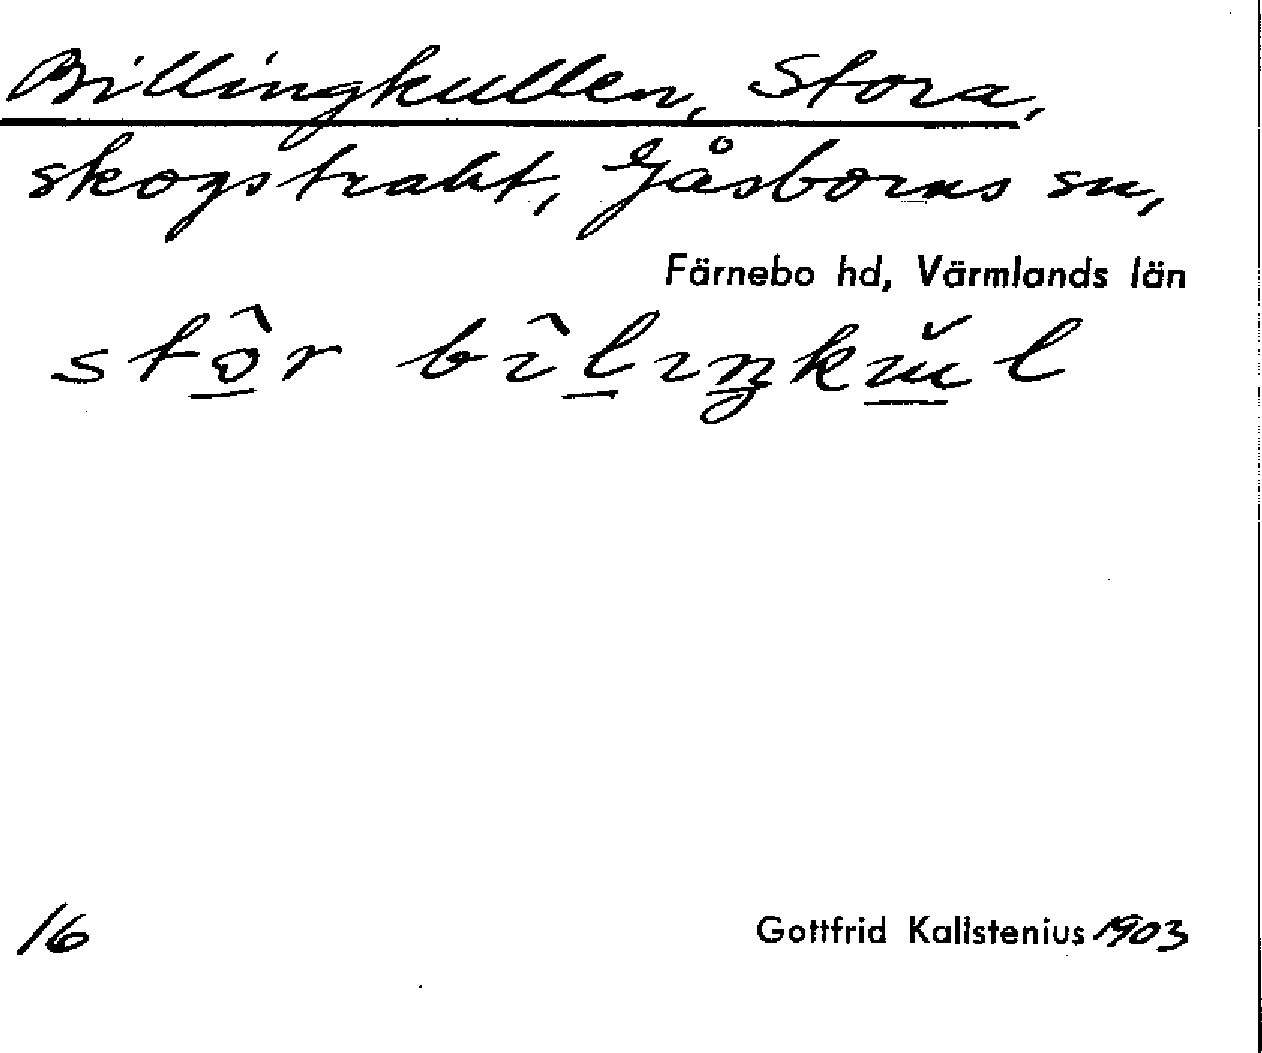 Billingkullen, Stora,
skogstrakt, Gåsborns sn,
Färnebo hd, Värmlands län
stôr bîlıŋkŭl
16
Gottfrid Kallstenius 1903